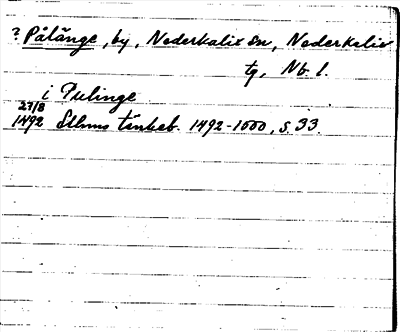 ? Pålänge, by, Nederkalix sn, Nederkalix
tg, Nb. l.
i Pulinge
27/8
1492 Sthms tänkeb. 1492-1500, s. 33.